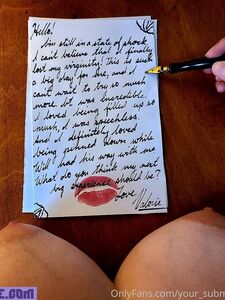 Hello!
I'm still in a state of shock
I can't believe that I finally
lost my virginity! This is such
a big day for me, and I
can't wait to try so much
more. It was incredible.
I loved being filled up so
much, I was speechless.
And I definitely loved
being pinned down while
Will had his way with me
What do you think my next
big experience should be?
Love,
Valorie
E.COM
OnlyFans.com/your_subm